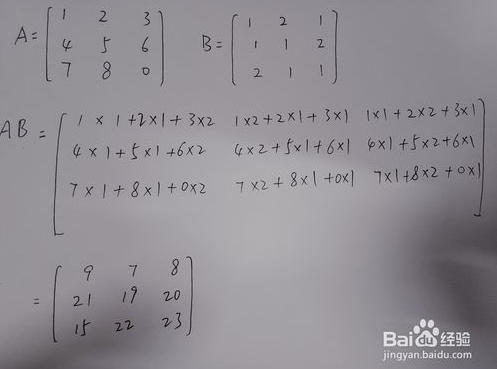 A= [ 1 2 3   B= [ 1 2 1
4 5 6   1 1 2
7 8 0 ]   2 1 1 ]
AB = [ 1×1+2×1+3×2 1×2+2×1+3×1 1×1+2×2+3×1
4×1+5×1+6×2 4×2+5×1+6×1 4×1+5×2+6×1
7×1+8×1+0×2 7×2+8×1+0×1 7×1+8×2+0×1 ]
= [ 9 7 8
21 19 20
15 22 23 ]
Bai du 经验
jingyan.baidu.com